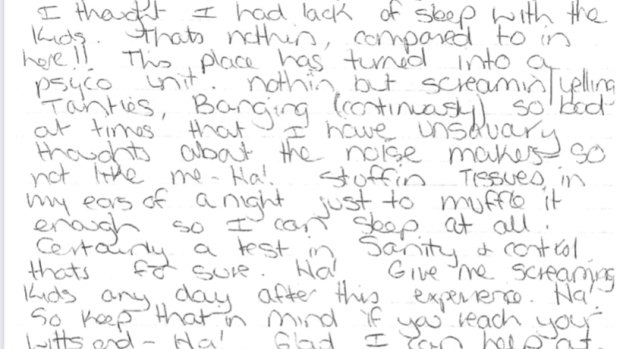 I thought I had lack of sleep with the
kids. Thats nothin, compared to in
here!! This place has turned into a
psyco unit. nothin but screamin/yelling
Tanties, Banging (continuasly) so bad
at times that I have unsavary
thoughts about the noise makers so
not like me - Ha! Stuffin Tissues in
my ears of a night just to muffle it
enough so I can sleep at all.
Certainly a test in Sanity & control
thats for sure. Ha! Give me screaming
kids any day after this experience. Ha!
So keep that in mind if you reach your
witts end - Ha! Glad I can help at